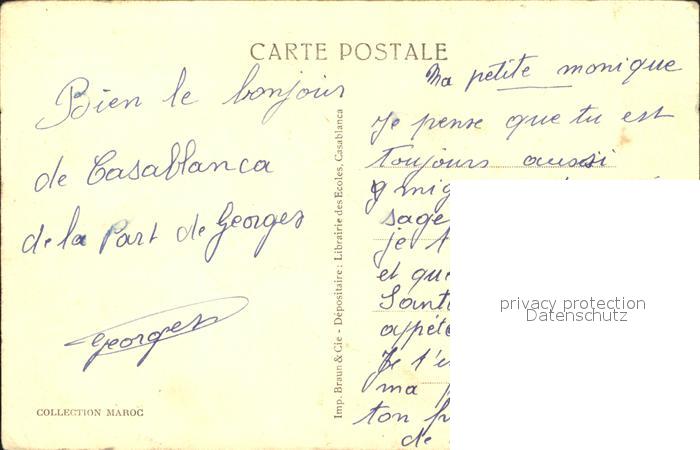 CARTE POSTALE
Bien le bonjour
de Casablanca
de la Part de Georges
Georges
COLLECTION MAROC
Imp. Braun & Cie - Dépositaire : Librairie des Ecoles, Casablanca
Ma petite monique
Je pense que tu est
toujours aussi
sage
je t
et que
Sant
appét
Je t'e
ma
ton
de
privacy protection
Datenschutz